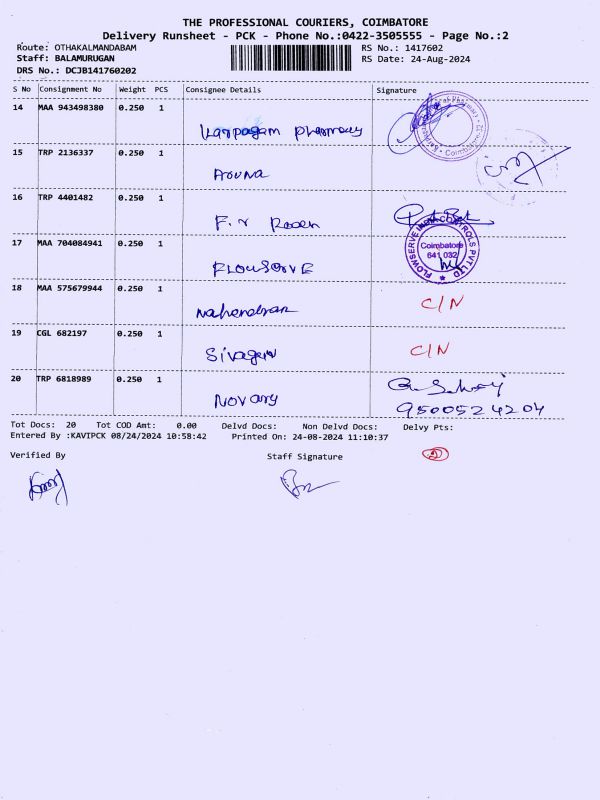 THE PROFESSIONAL COURIERS, COIMBATORE
Delivery Runsheet - PCK - Phone No.:0422-3505555 - Page No.:2
Route: OTHAKALMANDABAM RS No.: 1417602
Staff: BALAMURUGAN RS Date: 24-Aug-2024
DRS No.: DCJB141760202
S No Consignment No Weight PCS Consignee Details Signature
14 MAA 943498380 0.250 1
Karpagam Pharmacy
15 TRP 2136337 0.250 1
Aruna
16 TRP 4401482 0.250 1
F.V
17 MAA 704084941 0.250 1
FLOWSERVE
Coimbatore
641 032
18 MAA 575679944 0.250 1
Mahendran C/N
19 CGL 682197 0.250 1
C/N
20 TRP 6818989 0.250 1
Novary
9500524204
Tot Docs: 20 Tot COD Amt: 0.00 Delvd Docs: Non Delvd Docs: Delvy Pts:
Entered By :KAVIPCK 08/24/2024 10:58:42 Printed On: 24-08-2024 11:10:37
Verified By Staff Signature
2